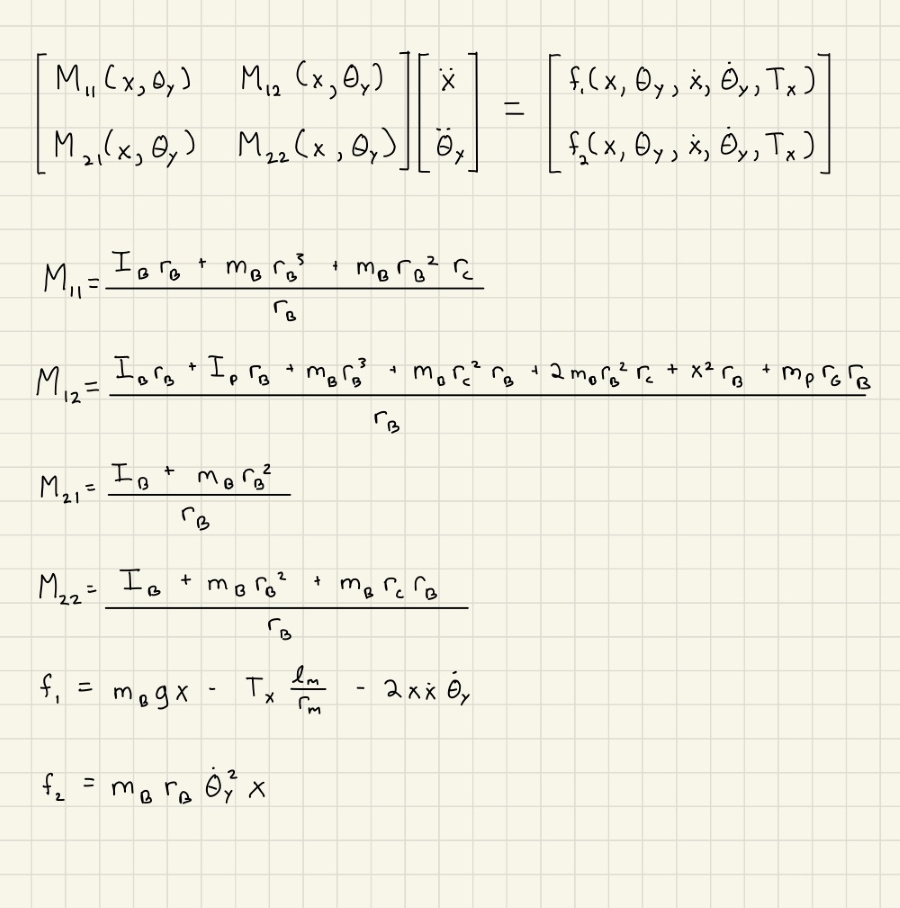 [M₁₁(x,θᵧ) M₁₂(x,θᵧ)] [ẍ] = [f₁(x, θᵧ, ẋ, θ̇ᵧ, Tₓ)]
[M₂₁(x,θᵧ) M₂₂(x,θᵧ)] [θ̈ᵧ] [f₂(x, θᵧ, ẋ, θ̇ᵧ, Tₓ)]
M₁₁ = (I_B r_B + m_B r_B³ + m_B r_B² r_C) / r_B
M₁₂ = (I_B r_B + I_P r_B + m_B r_B³ + m_B r_C² r_B + 2 m_B r_B² r_C + x² r_B + m_P r_G r_B) / r_B
M₂₁ = (I_B + m_B r_B²) / r_B
M₂₂ = (I_B + m_B r_B² + m_B r_C r_B) / r_B
f₁ = m_B g x - Tₓ l_m / r_m - 2 x ẋ θ̇ᵧ
f₂ = m_B r_B θ̇ᵧ² x